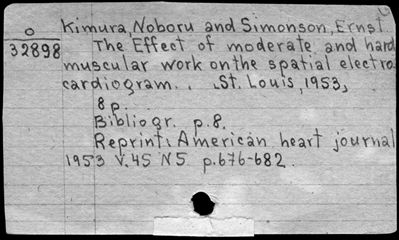 O
32898
Kimura, Noboru and Simonson, Ernst.
The Effect of moderate and hard
muscular work on the spatial electro
cardiogram.. St. Louis, 1953,
8 p.
Bibliogr. p. 8.
Reprint: American heart journal
1953 V.45 N5 p.676-682.